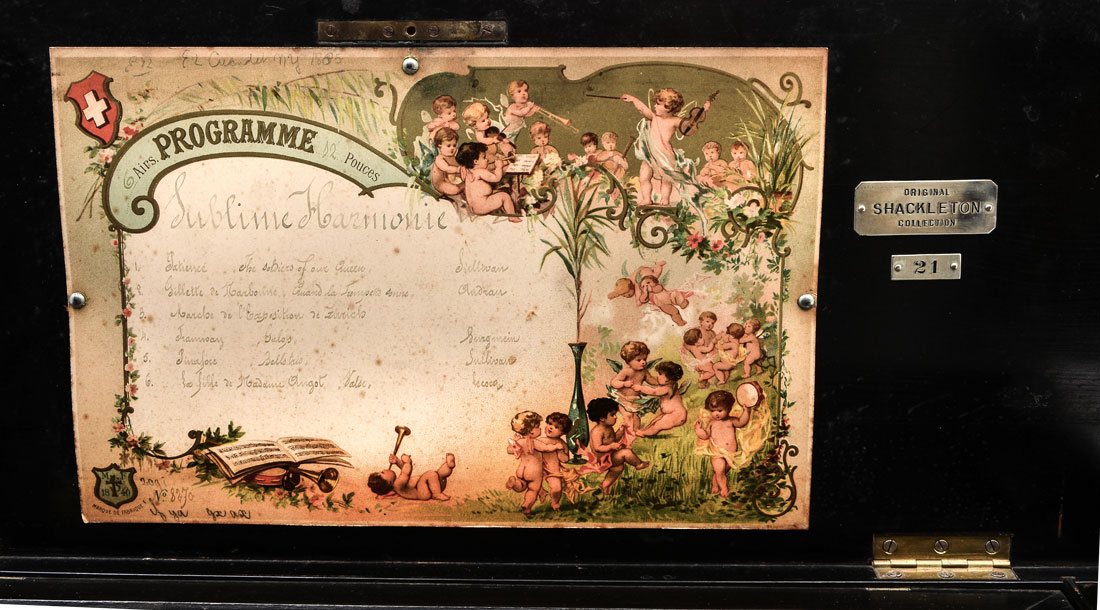 PROGRAMME
6 Airs. 12 Pouces
Sublime Harmonie
1. Patience The soldiers of our Queen, Sullivan
2. Gillette de Narbonne, Audran
3. Marche de l'Exposition de Zurich
4. Tramway Galop,
5. Pinafore Sullivan
6. La fille de Madame Angot, Valse, Lecocq
ORIGINAL
SHACKLETON
COLLECTION
21
1840
MARQUE DE FABRIQUE